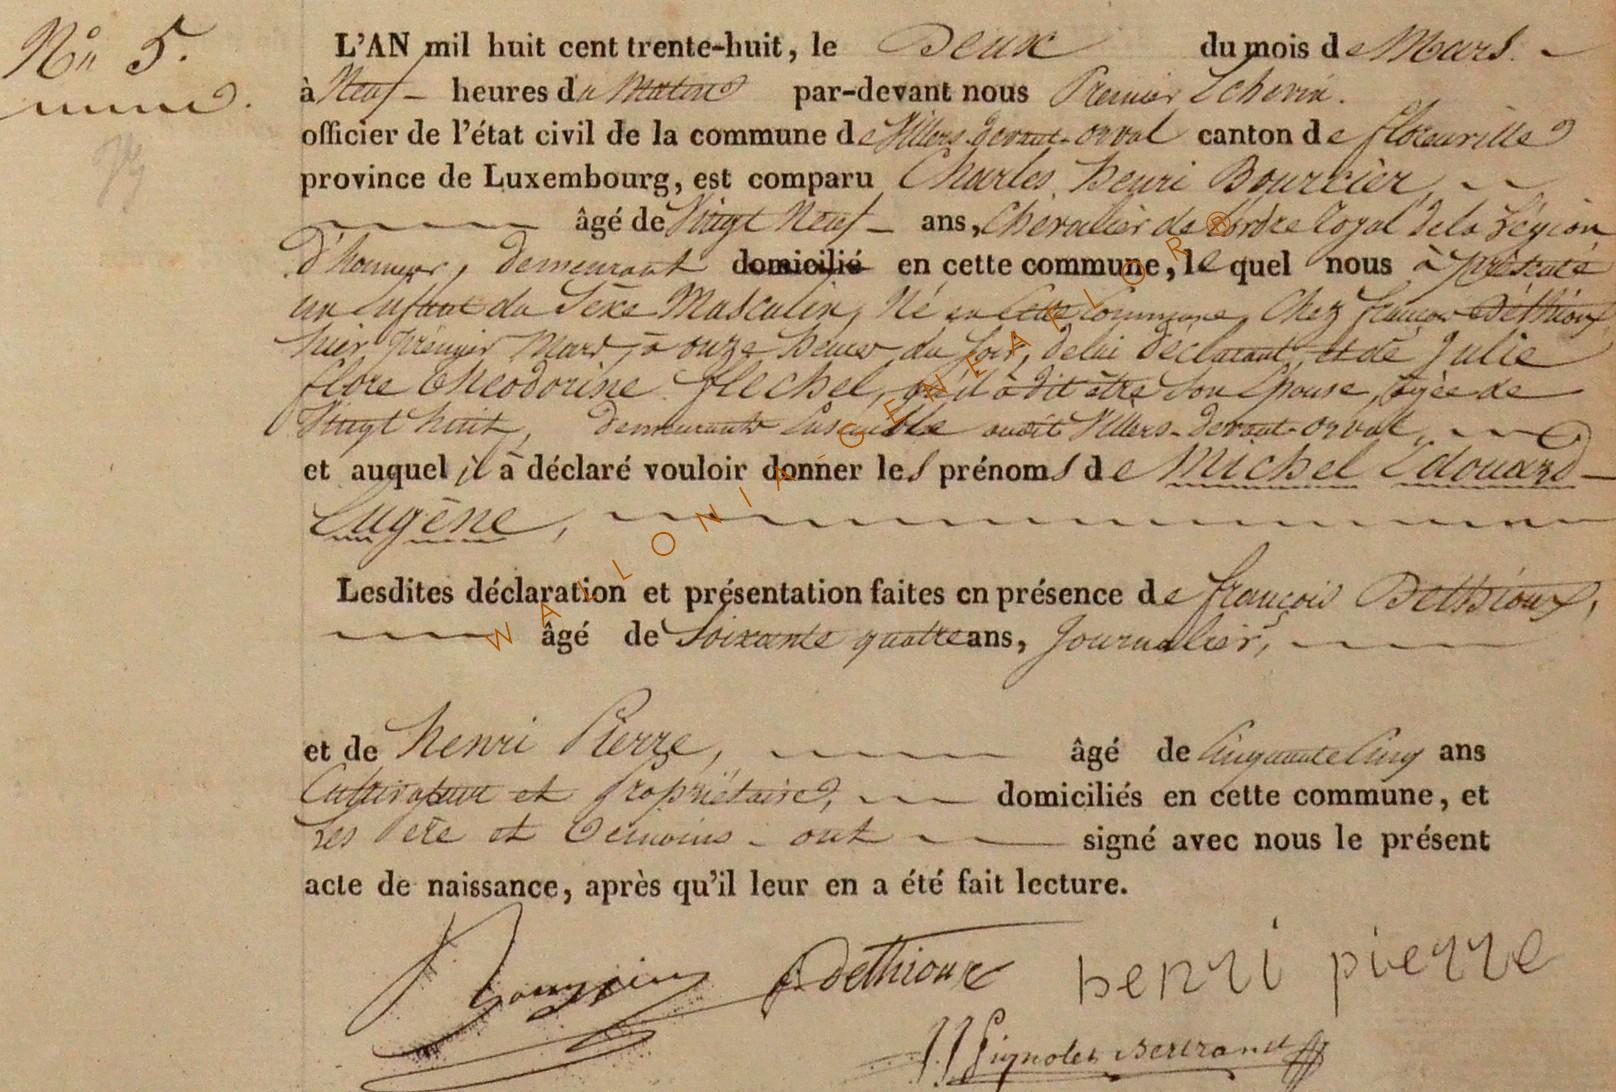 No 5.
L'AN mil huit cent trente-huit, le Deux du mois de Mars.
à Neuf heures du Matin par-devant nous Premier Echevin.
officier de l'état civil de la commune de Villers-devant-orval canton de florenville
province de Luxembourg, est comparu Charles henri Bourcier,
âgé de Vingt Neuf ans, Chevalier de l'ordre Royal de la Légion
d'honneur, demeurant domicilié en cette commune, le quel nous à présenté
un Enfant du Sèxe Masculin, Né en Cette Commune, Chez françois Dethioux
hier, Prémier Mars, à onze heures du soir, de lui déclarant, et de Julie
flore théodorine flechel, qu'il à dit être Son Epouse, âgée de
Vingt huit, demeurants Ensemble audit Villers-devant-orval,
et auquel il à déclaré vouloir donner les prénoms de Michel Edouard
Eugène,
Lesdites déclaration et présentation faites en présence de françois Dethioux,
âgé de Soixante quatre ans, Journalier,
et de henri Pierre, âgé de Cinquante Cinq ans
Cultivateur et Propriétaire, domiciliés en cette commune, et
Les Père et Témoins ont signé avec nous le présent
acte de naissance, après qu'il leur en a été fait lecture.
Dethioux henri pierre
Bertrand
WALLONIA GENEAFLOR®